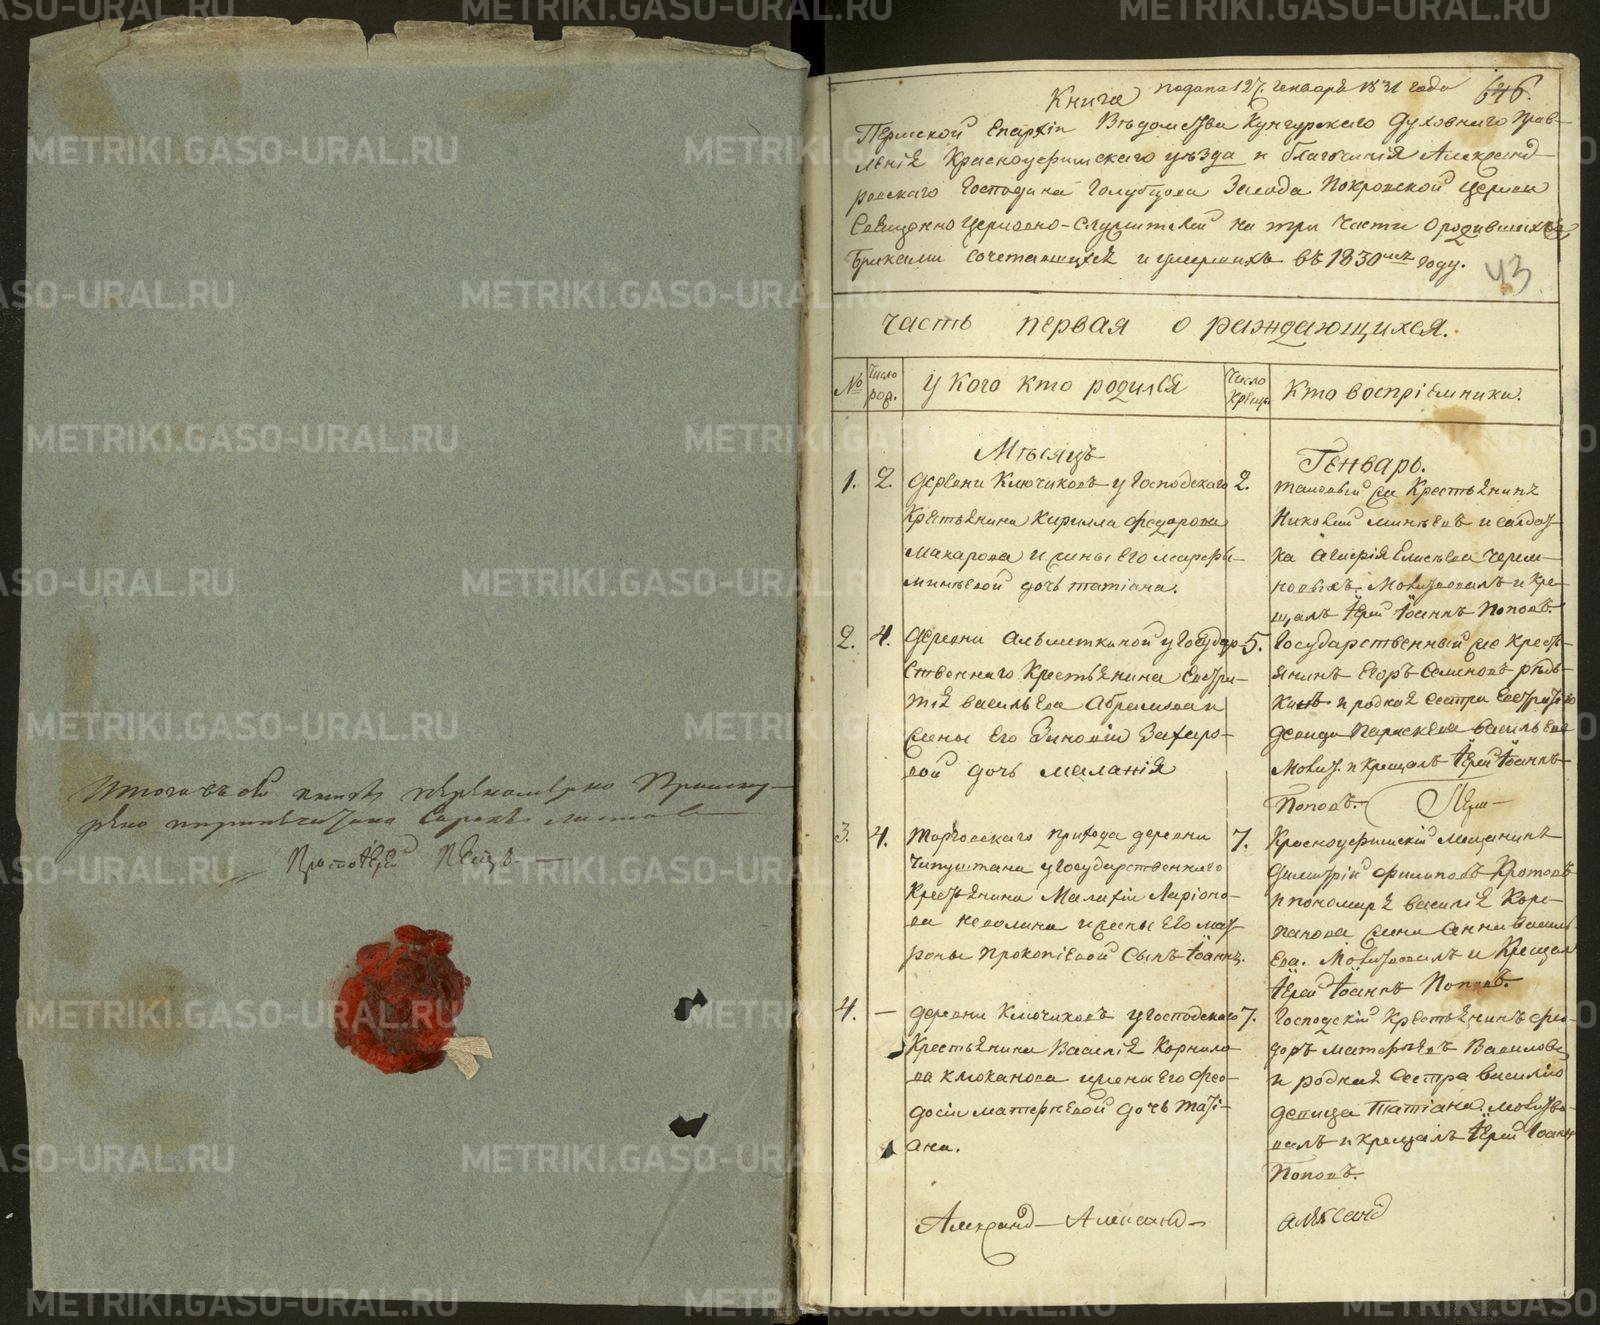 Итого въ сей книгѣ
Протоіерей
Книга подана 127. Генваря 1831 года 646.
Пермской Епархіи Вѣдомства Кунгурскаго Духовнаго Прав-
ленія Красноуфимскаго уѣзда и благочинія Александ-
ровскаго Господина Голубцова Завода Покровской церкви
Священно церковно-служителей на три части о родившихся
браками сочетавшихся и умершихъ въ 1830мъ году. 43
Часть первая о раждающихся.
№ Число род. У кого кто родился Число крещ. Кто воспріемники.
Мѣсяцъ Генварь.
1. 2. Деревни Ключиковъ у Господскаго 2.
Крестьянина Кирилла Федорова
Макарова и жены его Марфы
Минѣевой дочь Татіана.
Таковый же Крестьянинъ
Минѣевъ и солдат-
ка Елисѣева Черем-
новыхъ. Молитвовалъ и кре-
щалъ Іерей Іоаннъ Поповъ.
2. 4. Деревни Альметкиной у Государ- 5.
ственнаго Крестьянина Евстра-
тія Васильева Абрамова и
жены его Зиновіи Захаро-
вой дочь Маланія
Государственный же кресть-
янинъ Егоръ Семеновъ Рѣдь-
кинъ и родная сестра Евстратію
девица Параскева Васильева
Молит. и крещалъ Іерей Іоаннъ
Поповъ. Перм-
3. 4. Торговскаго прихода деревни 7.
Чипуштана у Государственнаго
Крестьянина Малахіи Ларіоно-
ва Неволина и жены его Мат-
роны Прокопіевой сынъ Іоаннъ.
Красноуфимскій Мещанинъ
Димитрій Филиповъ Кротовъ
и пономаря Василія Кор-
панова жена Анна Василь
ева. Молитвовалъ и Крещалъ
Іерей Іоаннъ Поповъ.
4. — Деревни Ключиковъ у Господскаго 7.
Крестьянина Василія Корнило-
ва Клюканова и жены его Фео-
досіи Матерневой дочь Таті-
ана.
Господскій Крестьянинъ Фео-
доръ Матернѣевъ Вавиловъ
и родная сестра Василію
девица Татіана. Молитво-
валъ и крещалъ Іерей Іоаннъ
Поповъ.
Александ- Александ- Александ